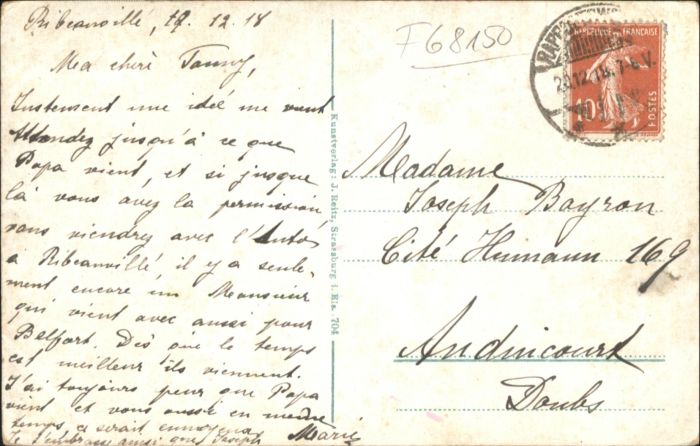 Ribeauvillé, 19.12.18
Ma chère Fanny,
Justement une idée me vient
Attendez jusqu'à ce que
Papa vient, et si jusque
là vous avez la permission,
vous viendrez avec l'Auto
à Ribeauvillé, il y a seule-
ment encore un Monsieur
qui vient avec aussi pour
Belfort. Dès que le temps
est meilleur ils viennent.
J'ai toujours peur que Papa
vient et vous aussi en même
temps, ce serait ennuyeux
Je t'embrasse ainsi que Joseph
Marie
Kunstverlag: J. Reitz, Strassburg i. Els. 704
F68150
RAPP
20.12.18. 7-8 V.
REPUBLIQUE FRANÇAISE
10c
POSTES
Madame
Joseph Bayron
Cité Humann 169
Audincourt
Doubs